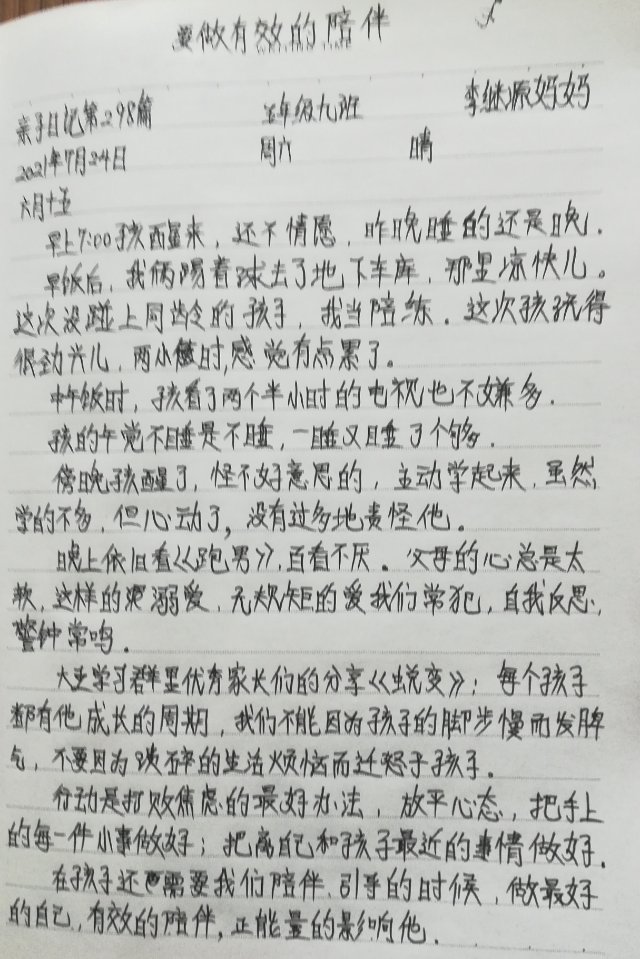 要做有效的陪伴
亲子日记第298篇 五年级九班 李继源妈妈
2021年7月24日 周六 晴
六月十五
早上7:00孩醒来，还不情愿，昨晚睡的还是晚.
早饭后，我俩踢着球去了地下车库，那里凉快儿。
这次没碰上同龄的孩子，我当陪练.这次孩玩得
很劲兴儿，两小时,感觉有点累了。
中午饭时，孩看了两个半小时的电视也不嫌多.
孩的午觉不睡是不睡，一睡又睡了个够.
傍晚孩醒了，怪不好意思的，主动学起来，虽然
学的不多，但心动了，没有过多地责怪他。
晚上依旧看《跑男》，百看不厌。父母的心总是太
软，这样的溺爱，无规矩的爱我们常犯，自我反思，
警钟常鸣.
大亚学习群里优秀家长们的分享《蜕变》：每个孩子
都有他成长的周期，我们不能因为孩子的脚步慢而发脾
气，不要因为琐碎的生活烦恼而迁怒于孩子.
行动是打败焦虑的最好办法，放平心态，把手上
的每一件小事做好；把离自己和孩子最近的事情做好.
在孩子还需要我们陪伴、引导的时候，做最好
的自己，有效的陪伴，正能量的影响他.